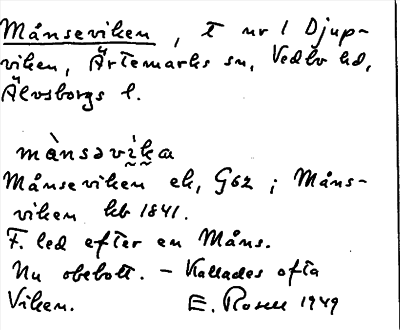 Månseviken, t nr 1 Djup-
viken, Ärtemarks sn, Vedbo hd,
Älvsborgs l.
mànsəvìka
Månseviken ek, G62; Måns-
viken kb 1841.
F. led efter en Måns.
Nu obebott. – Kallades ofta
Viken. E. Rosell 1949